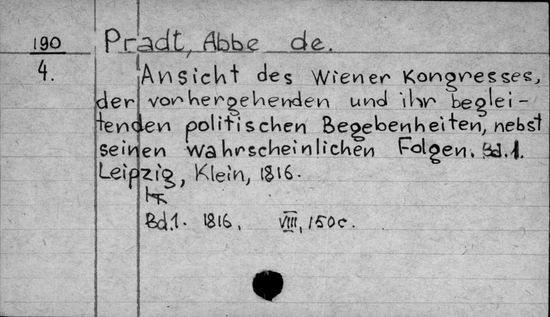 190 Pradt, Abbe de.
4. Ansicht des Wiener Kongresses,
der vorhergehenden und ihr beglei-
tenden politischen Begebenheiten, nebst
seinen wahrscheinlichen Folgen. Bd.1.
Leipzig, Klein, 1816.
Bd.1. 1816. VIII, 150c.